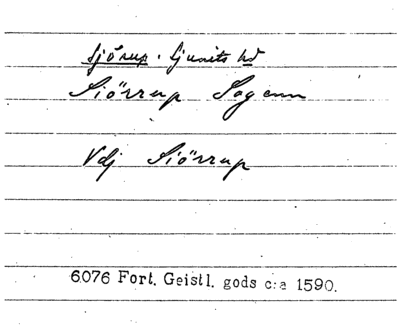 Sjörup. Ljunits hd
Siörrup Sogenn
Vdj Siörrup
6076 Fort. Geistl. gods c:a 1590.